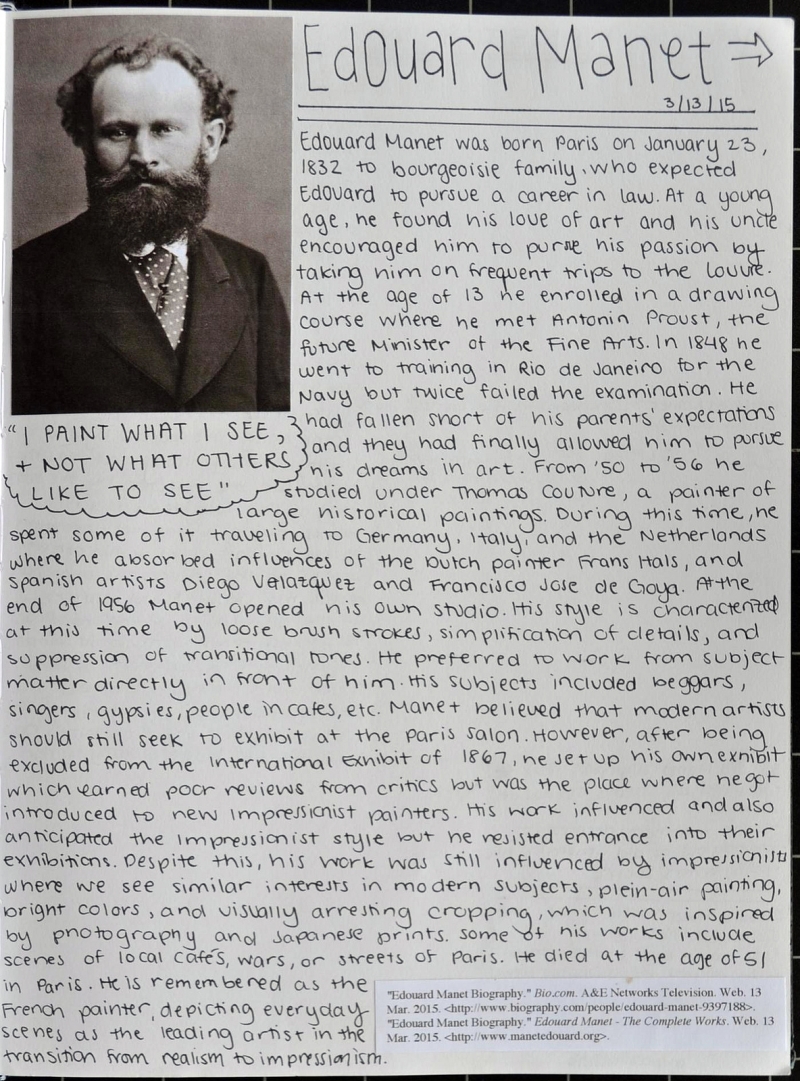 Edouard Manet
3/13/15
Edouard Manet was born Paris on January 23,
1832 to bourgeoisie family, who expected
Edouard to pursue a career in law. At a young
age, he found his love of art and his uncle
encouraged him to purse his passion by
taking him on frequent trips to the Louvre.
At the age of 13 he enrolled in a drawing
course where he met Antonin Proust, the
future Minister of the Fine Arts. In 1848 he
went to training in Rio de Janeiro for the
Navy but twice failed the examination. He
had fallen short of his parents' expectations
and they had finally allowed him to pursue
his dreams in art. From '50 to '56 he
studied under Thomas Couture, a painter of
large historical paintings. During this time, he
"I PAINT WHAT I SEE,
+ NOT WHAT OTHERS
LIKE TO SEE"
spent some of it traveling to Germany, Italy, and the Netherlands
where he absorbed influences of the Dutch painter Frans Hals, and
Spanish artists Diego Velazquez and Francisco Jose de Goya. At the
end of 1956 Manet opened his own studio. His style is characterized
at this time by loose brush strokes, simplification of details, and
suppression of transitional tones. He preferred to work from subject
matter directly in front of him. His subjects included beggars,
singers, gypsies, people in cafes, etc. Manet believed that modern artists
should still seek to exhibit at the Paris Salon. However, after being
excluded from the International Exhibit of 1867, he set up his own exhibit
which earned poor reviews from critics but was the place where he got
introduced to new Impressionist painters. His work influenced and also
anticipated the Impressionist style but he resisted entrance into their
exhibitions. Despite this, his work was still influenced by impressionists
where we see similar interests in modern subjects, plein-air painting,
bright colors, and visually arresting cropping, which was inspired
by photography and Japanese prints. Some of his works include
scenes of local cafés, wars, or streets of Paris. He died at the age of 51
in Paris. He is remembered as the
French painter, depicting everyday
scenes as the leading artist in the
transition from realism to impressionism.
"Edouard Manet Biography." Bio.com. A&E Networks Television. Web. 13
Mar. 2015. <http://www.biography.com/people/edouard-manet-9397188>.
"Edouard Manet Biography." Edouard Manet - The Complete Works. Web. 13
Mar. 2015. <http://www.manetedouard.org>.